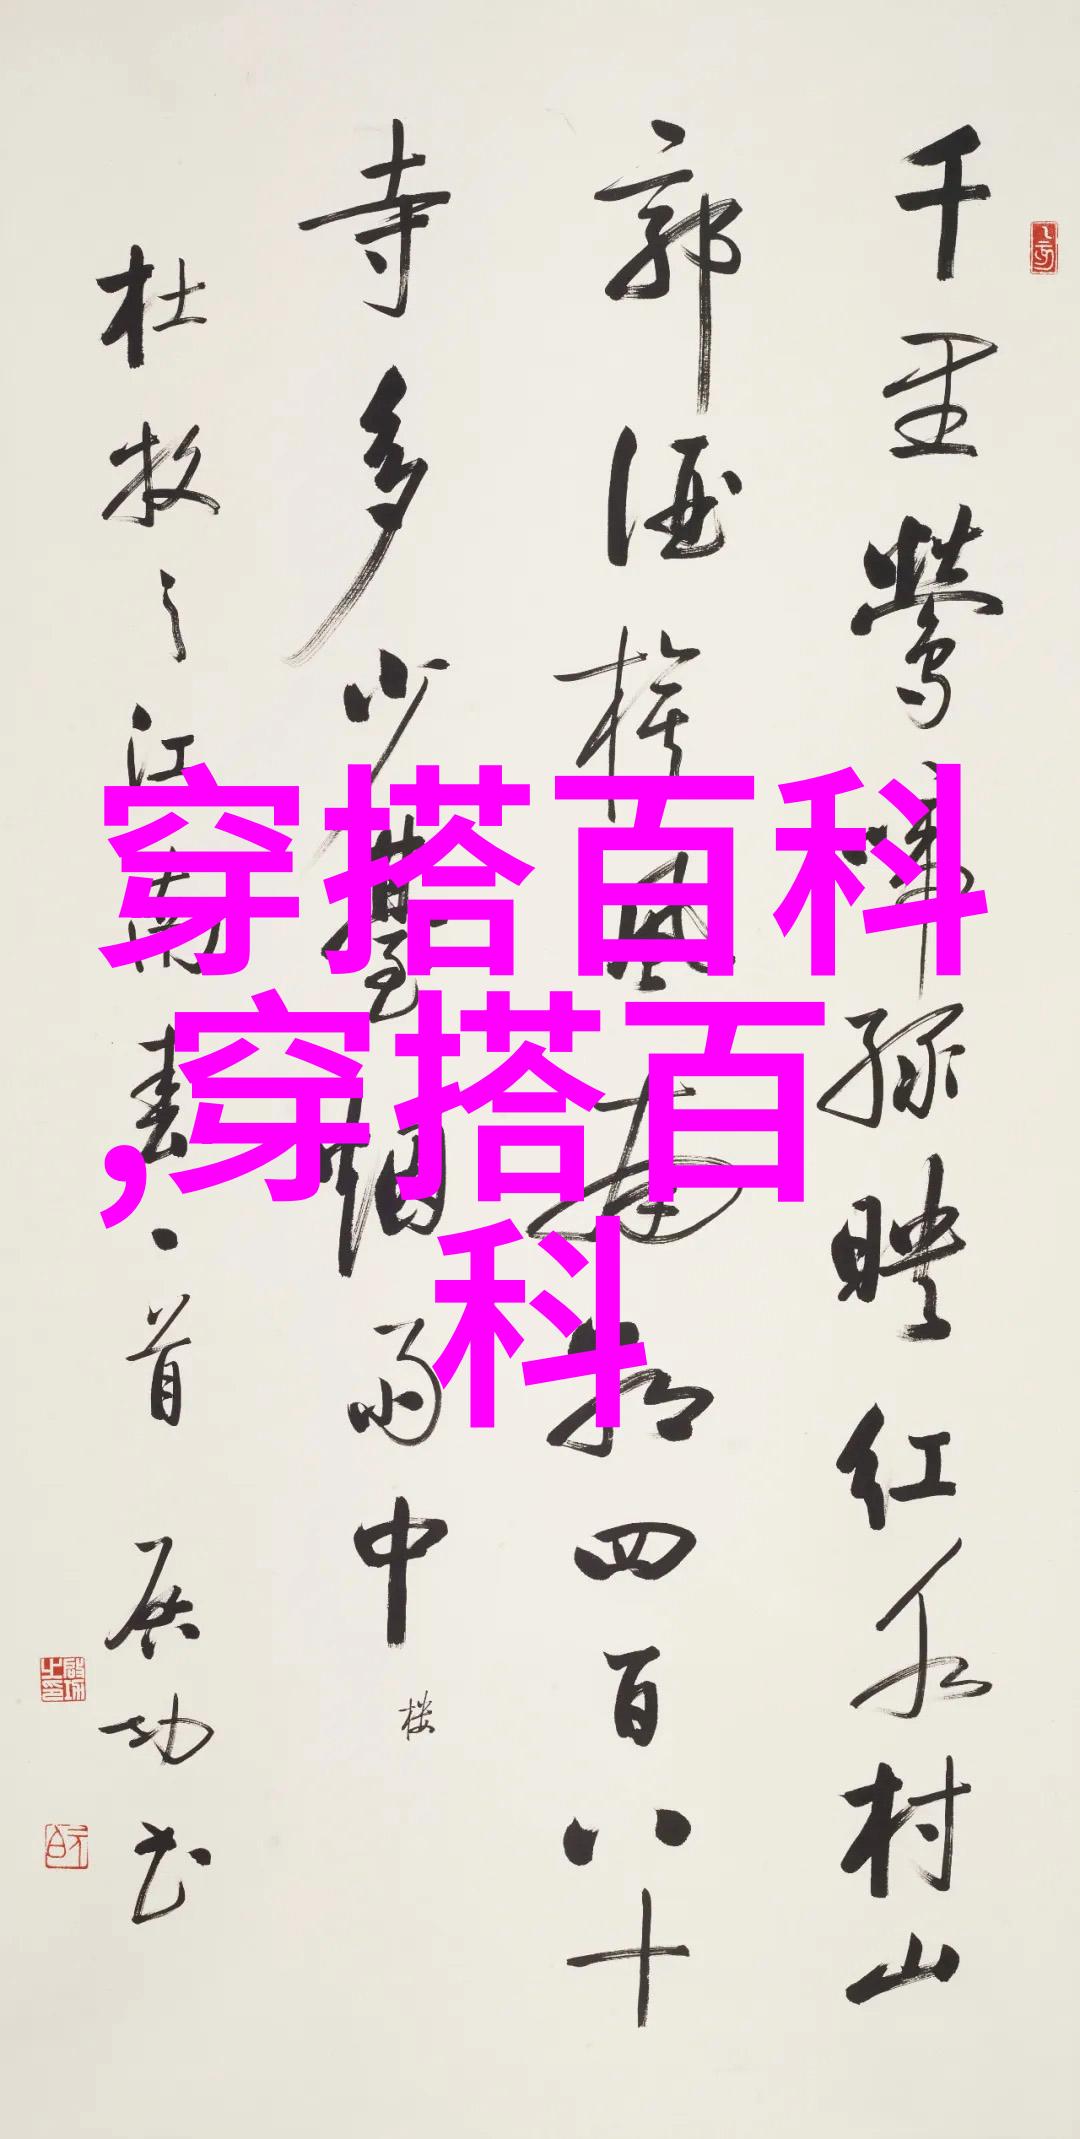 千里鶯啼綠映红水村山
郭酒旗風南朝四百八十
寺多少臺烟雨中
楼
杜牧之江南春一首 启功书
穿搭百科
,穿搭百
科